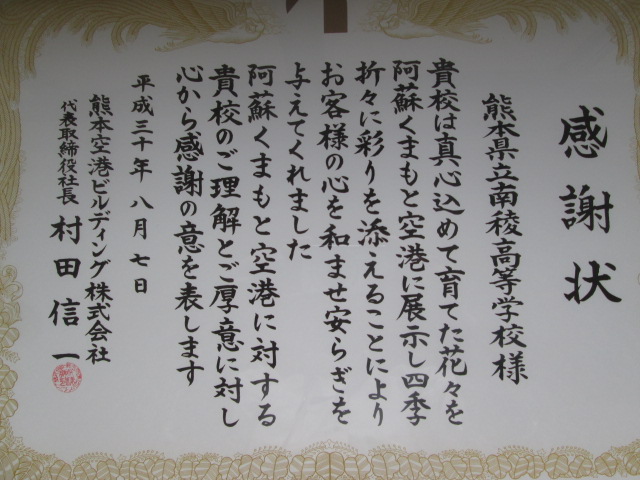 感謝状
熊本県立南稜高等学校様
貴校は真心込めて育てた花々を
阿蘇くまもと空港に展示し四季
折々に彩りを添えることにより
お客様の心を和ませ安らぎを
与えてくれました
阿蘇くまもと空港に対する
貴校のご理解とご厚意に対し
心から感謝の意を表します
平成三十年八月七日
熊本空港ビルディング株式会社
代表取締役社長 村田信一